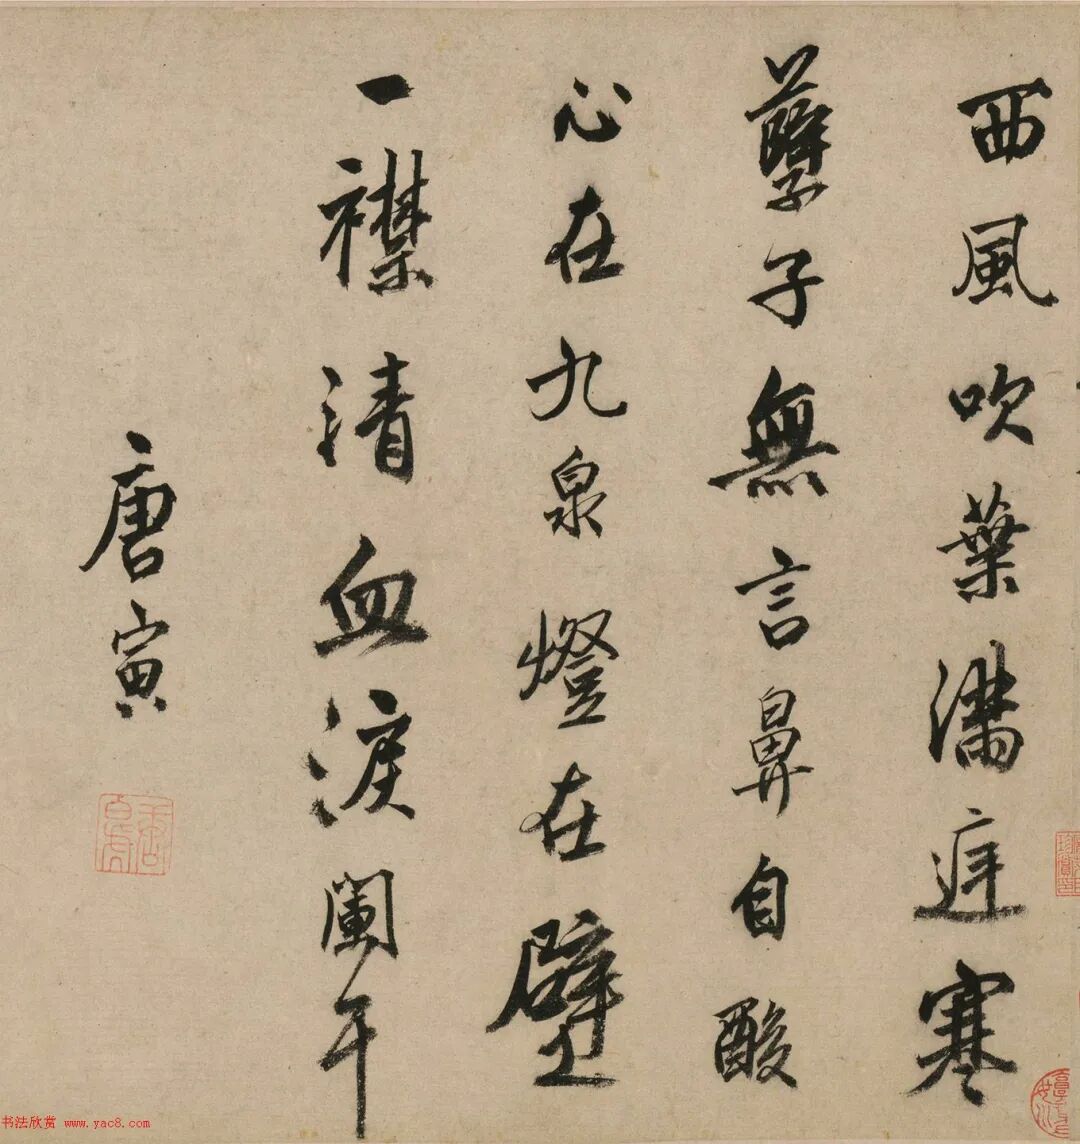 西風吹葉滿庭寒
孽子無言鼻自酸
心在九泉燈在壁
一襟清血淚闌干
唐寅
书法欣赏 www.yac8.com